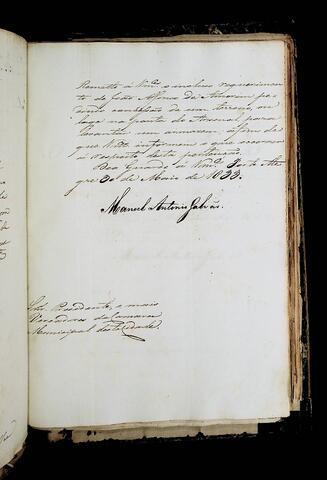 Remetto á Vm.ces o incluso requerimen-
to de João Affonso de Amorim pe-
dindo concessão de um terreno, ou
lugar na frente do Arsenal para
levantar um armazem, afim de
que V.mces informem o que occorrer
á respeito desta pertenção.
Deos Guarde a Vm.ces Porto Ale-
gre 30 de Maio de 1833.
Manoel Antonio Galvão.
Snrs. Presidente, e mais
Vereadores da Camara
Municipal desta Cidade.